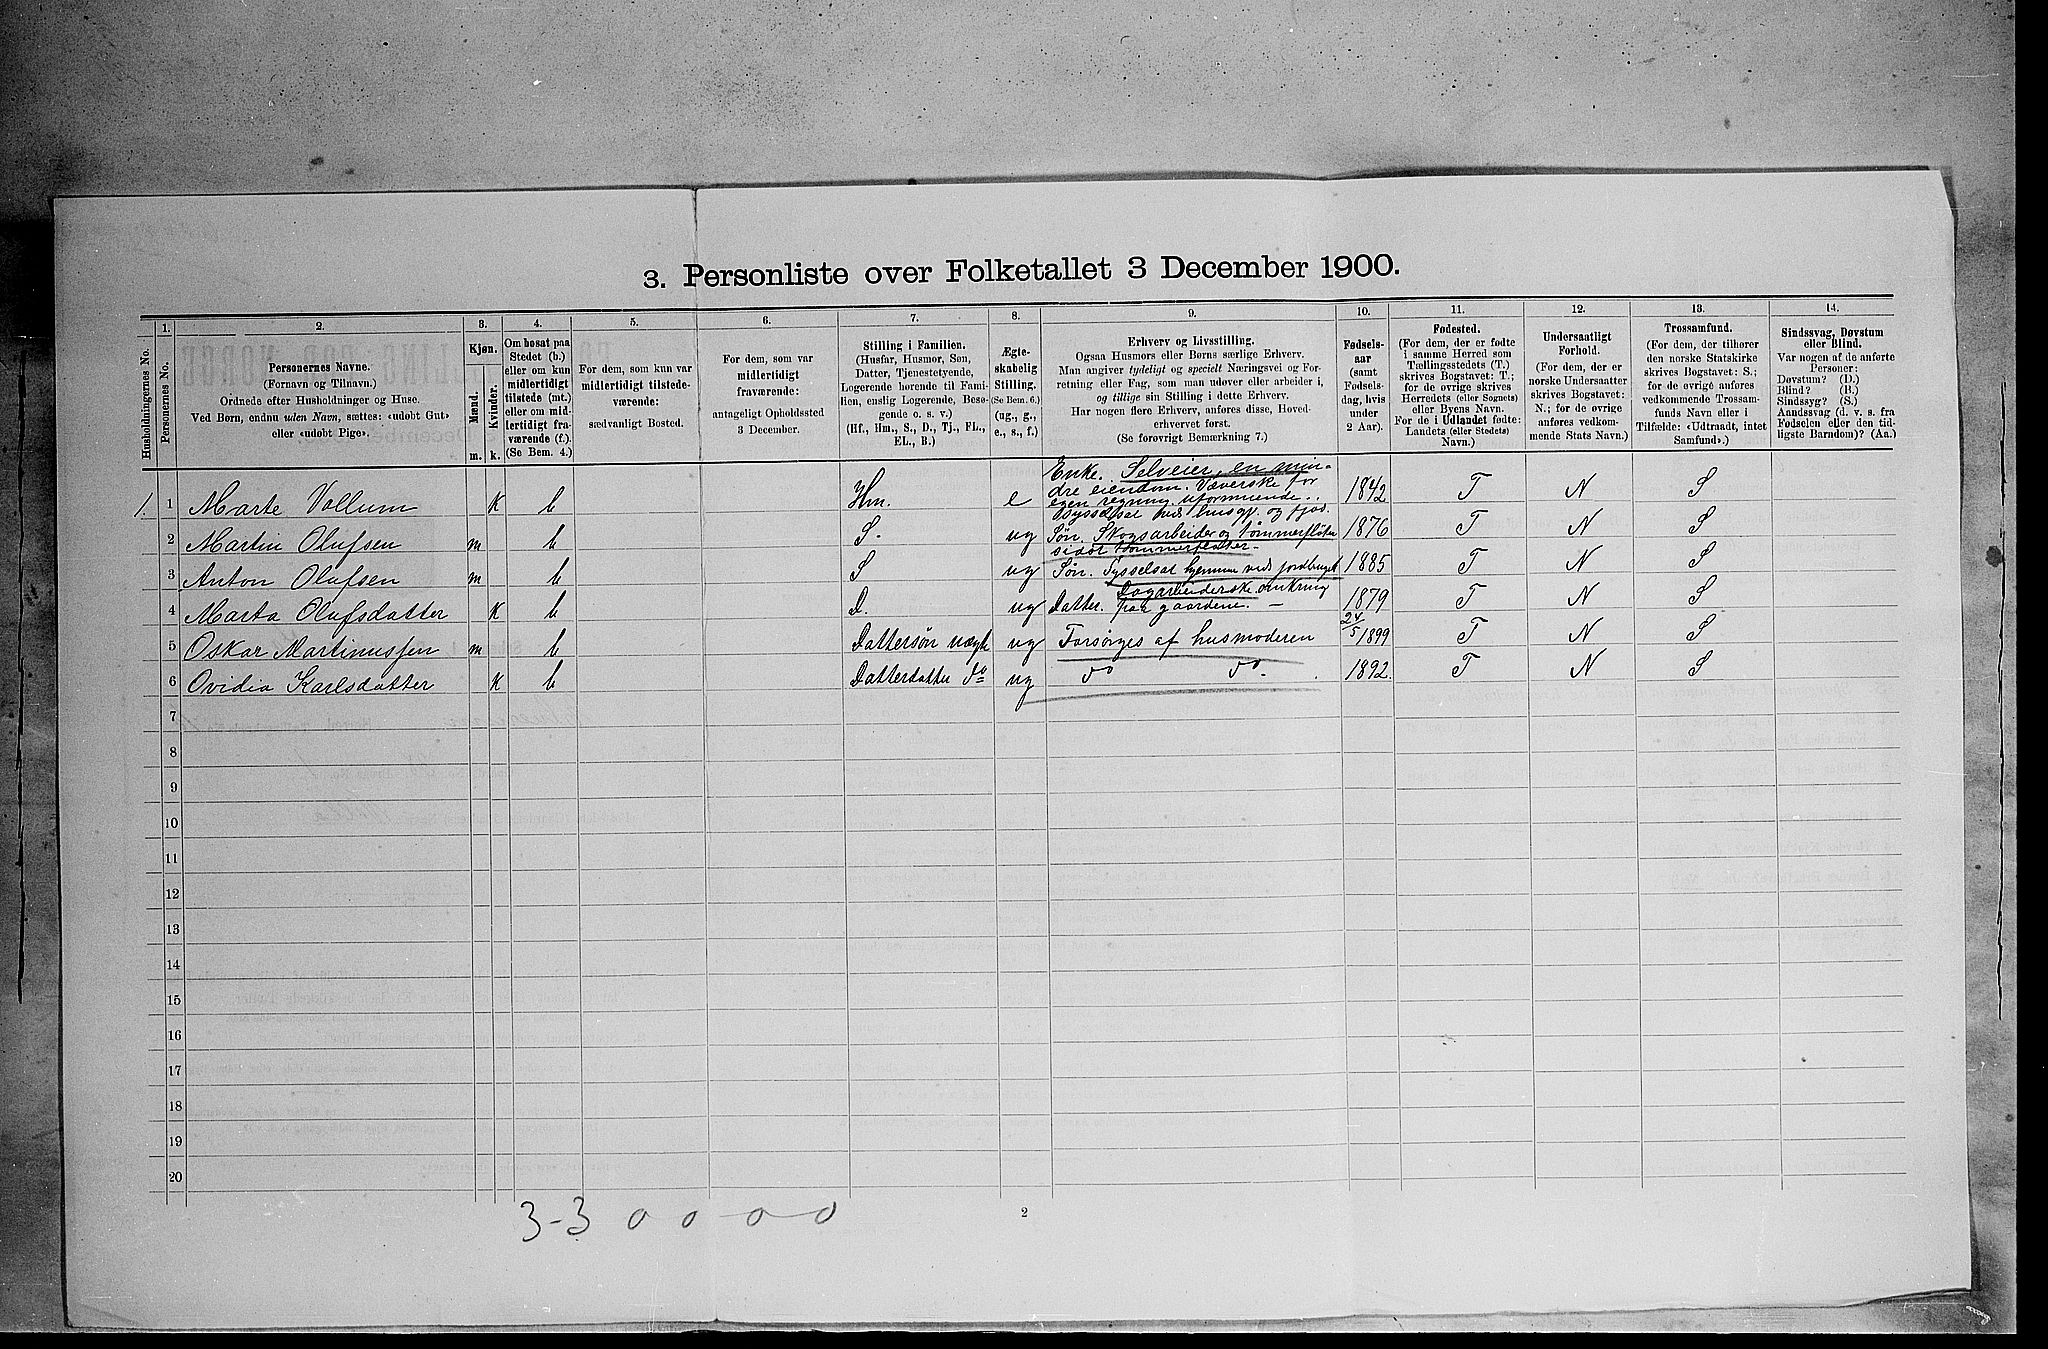 3. Personliste over Folketallet 3 December 1900.
Husholdningernes No.
1.
Personernes No.
2.
Personernes Navne.
(Fornavn og Tilnavn.)
Ordnede efter Husholdninger og Huse.
Ved Børn, endnu uden Navn, sættes: «udøbt Gut»
eller «udøbt Pige».
3.
Kjøn.
Mænd.
Kvinder.
m. k.
4.
Om bosat paa
Stedet (b.)
eller om kun
midlertidigt
tilstede (mt.)
eller om mid-
lertidigt fra-
værende (f.).
(Se Bem. 4.)
5.
For dem, som kun var
midlertidigt tilstede-
værende:
sædvanligt Bosted.
6.
For dem, som var
midlertidigt
fraværende:
antageligt Opholdssted
3 December.
7.
Stilling i Familien.
(Husfar, Husmor, Søn,
Datter, Tjenestetyende,
Logerende hørende til Fami-
lien, enslig Logerende, Besø-
gende o. s. v.)
(Hf., Hm., S., D., Tj., FL.,
EL., B.)
8.
Ægte-
skabelig
Stilling.
(Se Bem. 6.)
(ug., g.,
e., s., f.)
9.
Erhverv og Livsstilling.
Ogsaa Husmors eller Børns særlige Erhverv.
Man angiver tydeligt og specielt Næringsvei og For-
retning eller Fag, som man udøver eller arbeider i,
og tillige sin Stilling i dette Erhverv.
Har nogen flere Erhverv, anføres disse, Hoved-
erhvervet først.
(Se forøvrigt Bemærkning 7.)
10.
Fødsels-
aar
(samt
Fødsels-
dag, hvis
under
2 Aar).
11.
Fødested.
(For dem, der er fødte
i samme Herred som
Tællingsstedets (T.)
skrives Bogstavet: T.;
for de øvrige skrives
Herredets (eller Sognets)
eller Byens Navn.
For de i Udlandet fødte:
Landets (eller Stedets)
Navn.)
12.
Undersaatligt
Forhold.
(For dem, der er
norske Undersaatter
skrives Bogstavet:
N.; for de øvrige
anføres vedkom-
mende Stats Navn.)
13.
Trossamfund.
(For dem, der tilhører
den norske Statskirke
skrives Bogstavet: S.;
for de øvrige anføres
vedkommende Trossam-
funds Navn eller i
Tilfælde: «Udtraadt, intet
Samfund».)
14.
Sindssvag, Døvstum
eller Blind.
Var nogen af de anførte
Personer:
Døvstum? (D.)
Blind? (B.)
Sindssyg? (S.)
Aandssvag (d. v. s. fra
Fødselen eller den tid-
ligste Barndom)? (Aa.)
Enke. Selveier, en min-
dre eiendom. Væverske for
egen regning, uformuende..
1. 1 Marte Vollum K b Hm. e 1842 T N S
Sysselsat ved husgj. og fjøs.
2 Martin Olufsen m b S. ug Søn. Skogsarbeider og tømmerfløter 1876 T N S
sidst tømmerfløter.
3 Anton Olufsen m b S ug Søn. Sysselsat hjemme ved jordbruget 1885 T N S
Dagarbeiderske omkring
4 Marta Olufsdatter K b D. ug Datter. paa gaardene. — 1879 T N S
5 Oskar Martinussen m b Dattersøn ug Forsørges af husmoderen 24/5 1899 T N S
6 Ovidia Karlsdatter K b Datterdatter do ug do do. 1892. T N S
7
8
9
10
11
12
13
14
15
16
17
18
19
20
3-3 0 0 0 0
2